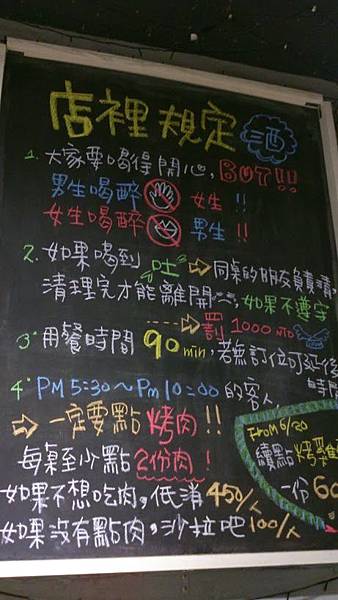 店裡規定 酒
1. 大家要喝得開心, BUT!!
男生喝醉 女生!!
女生喝醉 男生!!
2. 如果喝到吐 ⇨ 同桌的朋友負責清,
清理完才能離開, 如果不遵守
⇨ 罰 1000 NTD
3. 用餐時間 90 min, 若無訂位可延後
時間
4. PM 5:30~Pm 10:00 的客人
⇨ 一定要點烤肉!!
每桌至少點2份肉!
如果不想吃肉, 低消 450/人
如果沒有點肉, 沙拉吧 100/人
From 6/20
續點 烤雞
一份 60